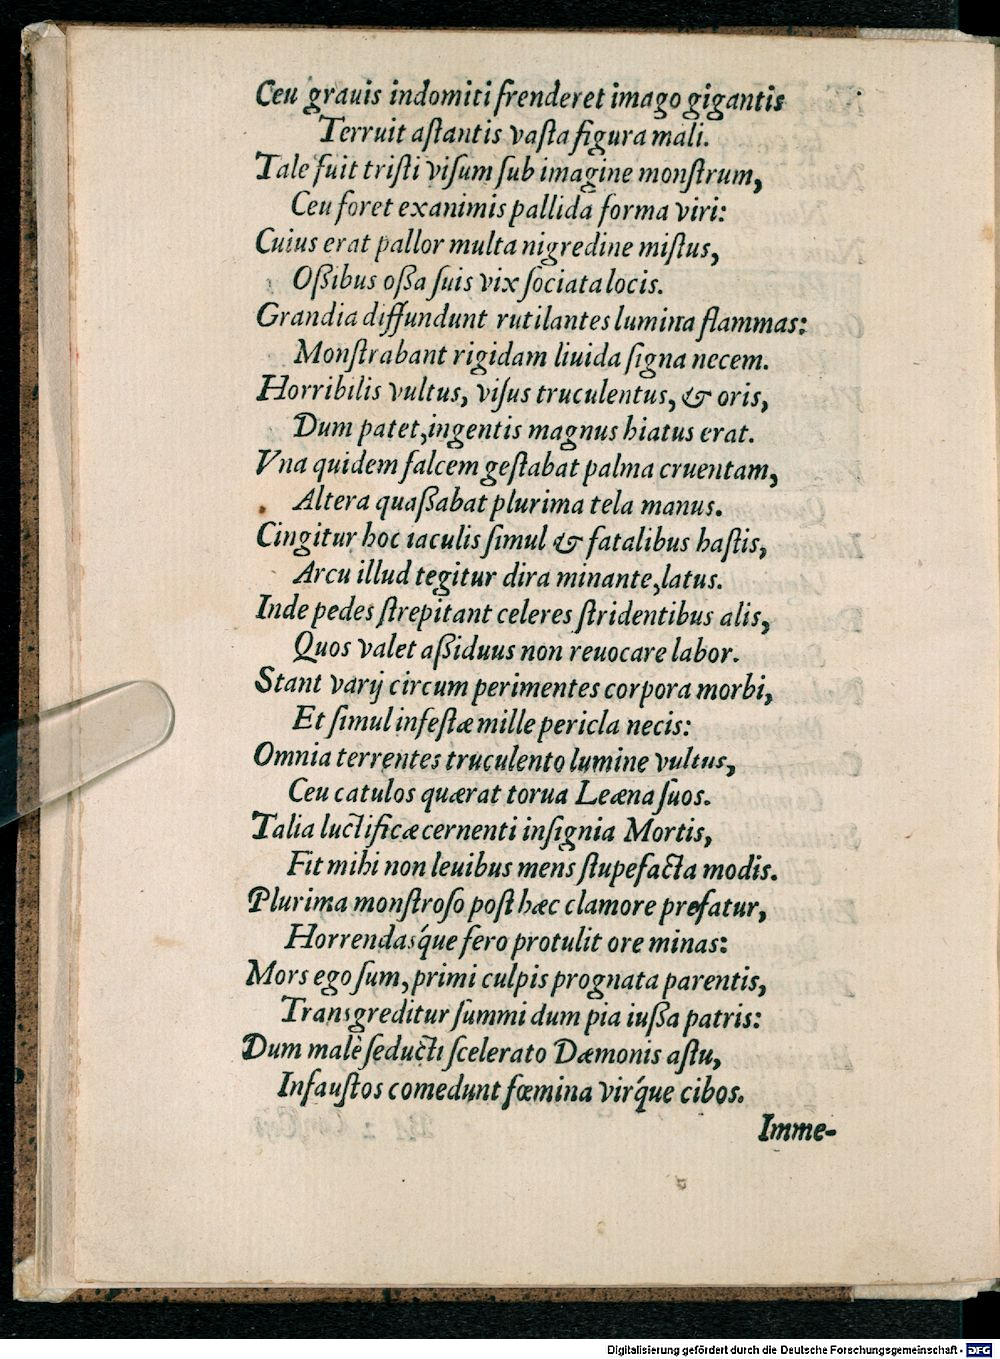 Ceu grauis indomiti frenderet imago gigantis
Terruit aſtantis vaſta figura mali.
Tale fuit triſti viſum ſub imagine monſtrum,
Ceu foret exanimis pallida forma viri:
Cuius erat pallor multa nigredine miſtus,
Oßibus oßa ſuis vix ſociata locis.
Grandia diffundunt rutilantes lumina flammas:
Monſtrabant rigidam liuida ſigna necem.
Horribilis vultus, viſus truculentus, & oris,
Dum patet, ingentis magnus hiatus erat.
Vna quidem falcem geſtabat palma cruentam,
Altera quaßabat plurima tela manus.
Cingitur hoc iaculis ſimul & fatalibus haſtis,
Arcu illud tegitur dira minante, latus.
Inde pedes ſtrepitant celeres ſtridentibus alis,
Quos valet aßiduus non reuocare labor.
Stant varij circum perimentes corpora morbi,
Et ſimul infeſtæ mille pericla necis:
Omnia terrentes truculento lumine vultus,
Ceu catulos quærat torua Leæna ſuos.
Talia luctificæ cernenti inſignia Mortis,
Fit mihi non leuibus mens ſtupefacta modis.
Plurima monſtroſo poſt hæc clamore profatur,
Horrendasq́ue fero protulit ore minas:
Mors ego ſum, primi culpis prognata parentis,
Transgreditur ſummi dum pia iußa patris:
Dum malè ſeducti ſcelerato Dæmonis aſtu,
Infauſtos comedunt fœmina virq́ue cibos.
Imme-
Digitalisierung gefördert durch die Deutsche Forschungsgemeinschaft - DFG